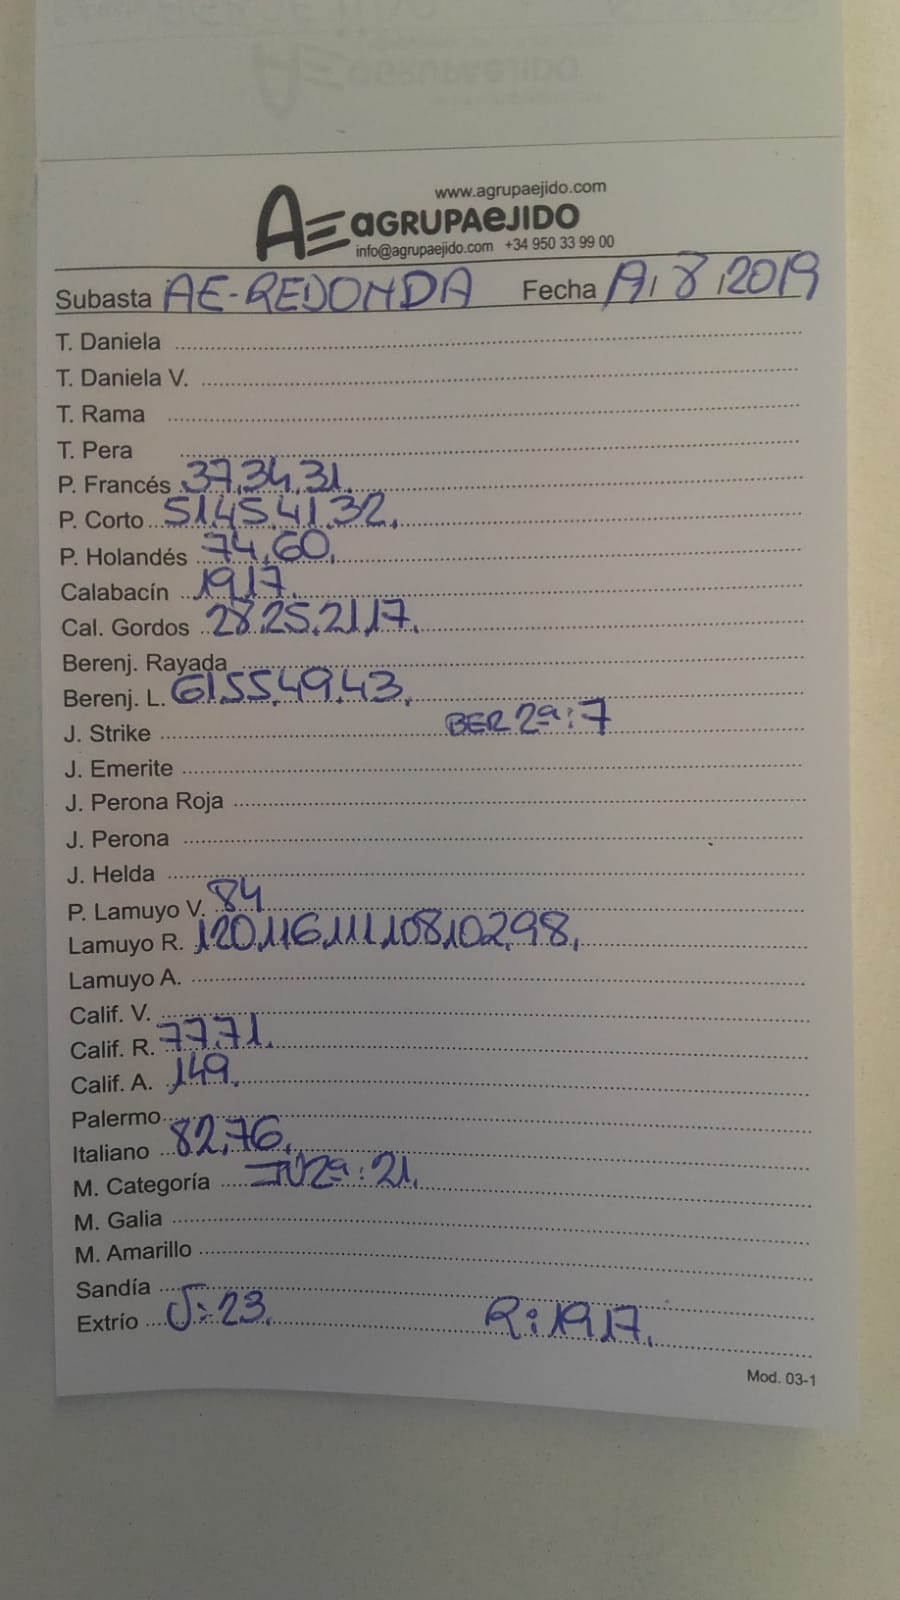 www.agrupaejido.com
AE aGRUPAeJIDO
info@agrupaejido.com +34 950 33 99 00
Subasta AE-REDONDA Fecha 19/8/2019
T. Daniela
T. Daniela V.
T. Rama
T. Pera
P. Francés 37,34,31.
P. Corto 51,45,41,32,
P. Holandés 74,60,
Calabacín 19,17.
Cal. Gordos 28,25,21,17,
Berenj. Rayada
Berenj. L. 61,55,49,43,
J. Strike BER 2ª: 7
J. Emerite
J. Perona Roja
J. Perona
J. Helda
P. Lamuyo V. 84
Lamuyo R. 120,116,111,108,102,98,
Lamuyo A.
Calif. V.
Calif. R. 77,71.
Calif. A. 149.
Palermo
Italiano 82,76,
M. Categoría 2ª: 21,
M. Galia
M. Amarillo
Sandía
Extrío J: 23. R: 19,17,
Mod. 03-1